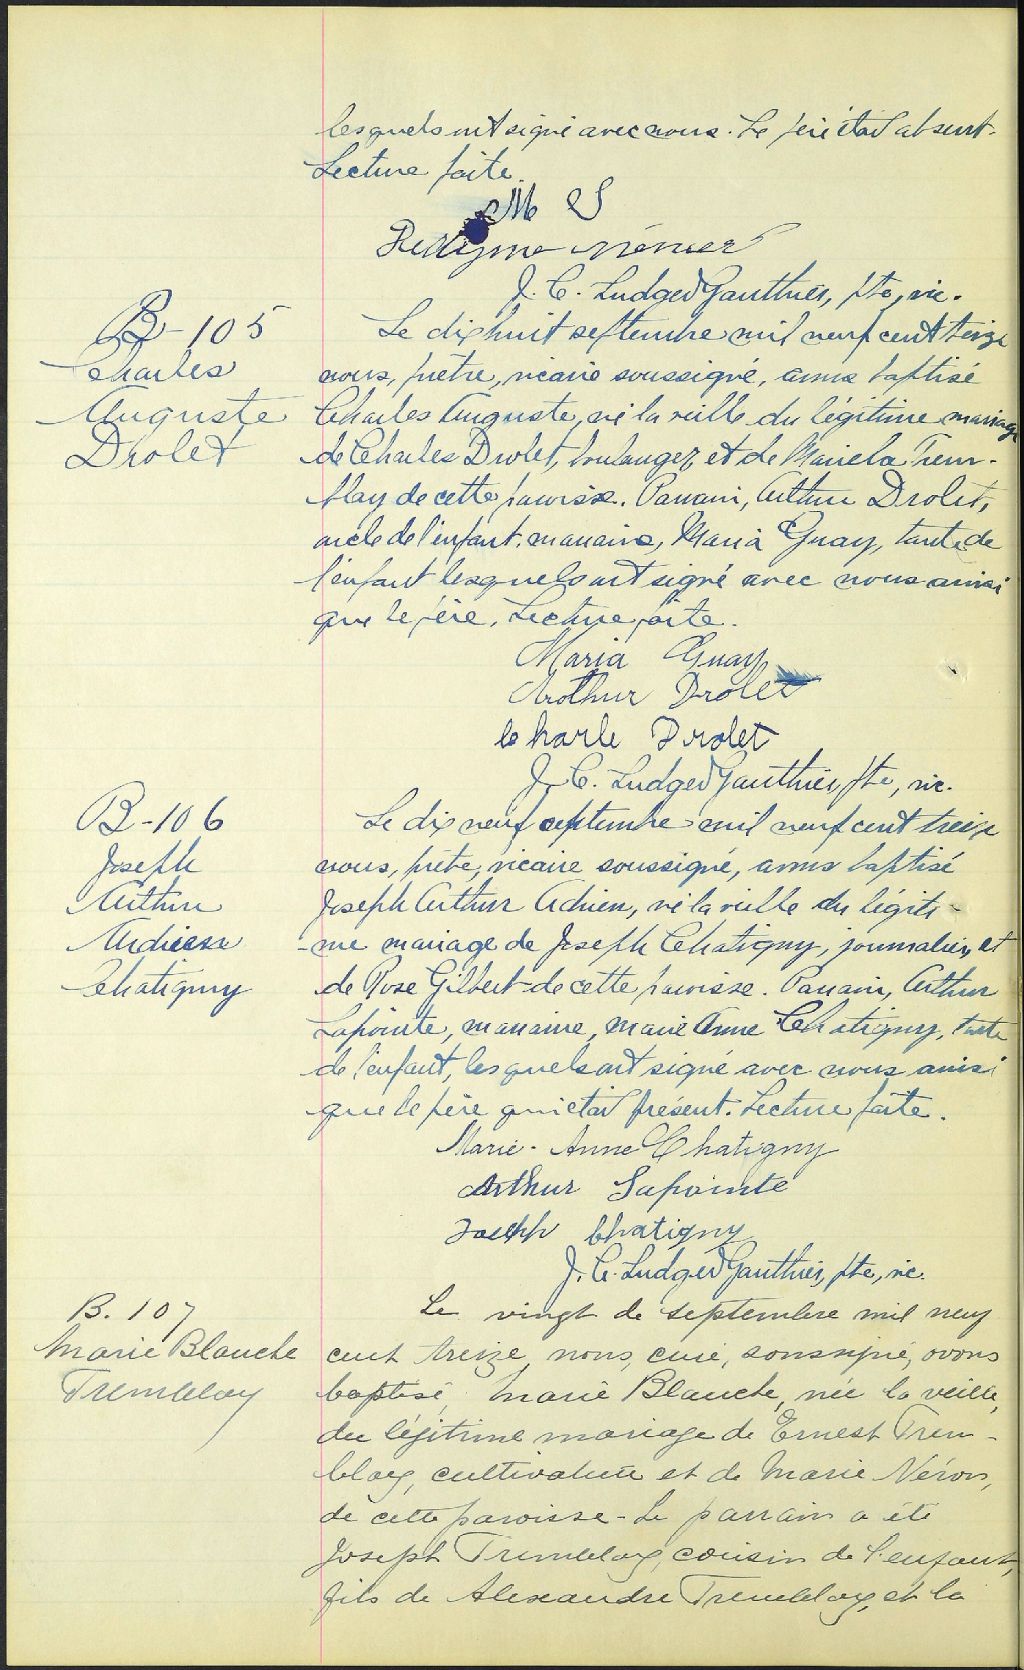 lesquels ont signé avec nous. Le père était absent.
Lecture faite.
J. C. Ludger Gauthier, ptre, vic.
B-105
Charles
Auguste
Drolet
Le dix huit septembre mil neuf cent treize
nous, prêtre, vicaire soussigné, avons baptisé
Charles Auguste, né la veille du légitime mariage
de Charles Drolet, boulanger, et de Maria Trem-
blay de cette paroisse. Parrain, Arthur Drolet,
oncle de l'enfant, marraine, Maria Guay, tante de
l'enfant lesquels ont signé avec nous ainsi
que le père. Lecture faite.
Maria Guay
Arthur Drolet
Charle Drolet
J. C. Ludger Gauthier, ptre, vic.
B-106
Joseph
Arthur
Adrien
Chatigny
Le dix neuf septembre mil neuf cent treize
nous, prêtre, vicaire soussigné, avons baptisé
Joseph Arthur Adrien, né la veille du légiti-
-me mariage de Joseph Chatigny, journalier, et
de Rose Gilbert de cette paroisse. Parrain, Arthur
Lapointe, marraine, Marie Anne Chatigny, tante
de l'enfant, lesquels ont signé avec nous ainsi
que le père qui était présent. Lecture faite.
Marie-Anne Chatigny
Arthur Lapointe
Joseph Chatigny
J. C. Ludger Gauthier, ptre, vic.
B. 107
Marie Blanche
Tremblay
Le vingt de septembre mil neuf
cent treize, nous, curé, soussigné, avons
baptisé Marie Blanche, née la veille,
du légitime mariage de Ernest Trem-
blay, cultivateur et de Marie Néron,
de cette paroisse - Le parrain a été
Joseph Tremblay, cousin de l'enfant,
fils de Alexandre Tremblay, et la